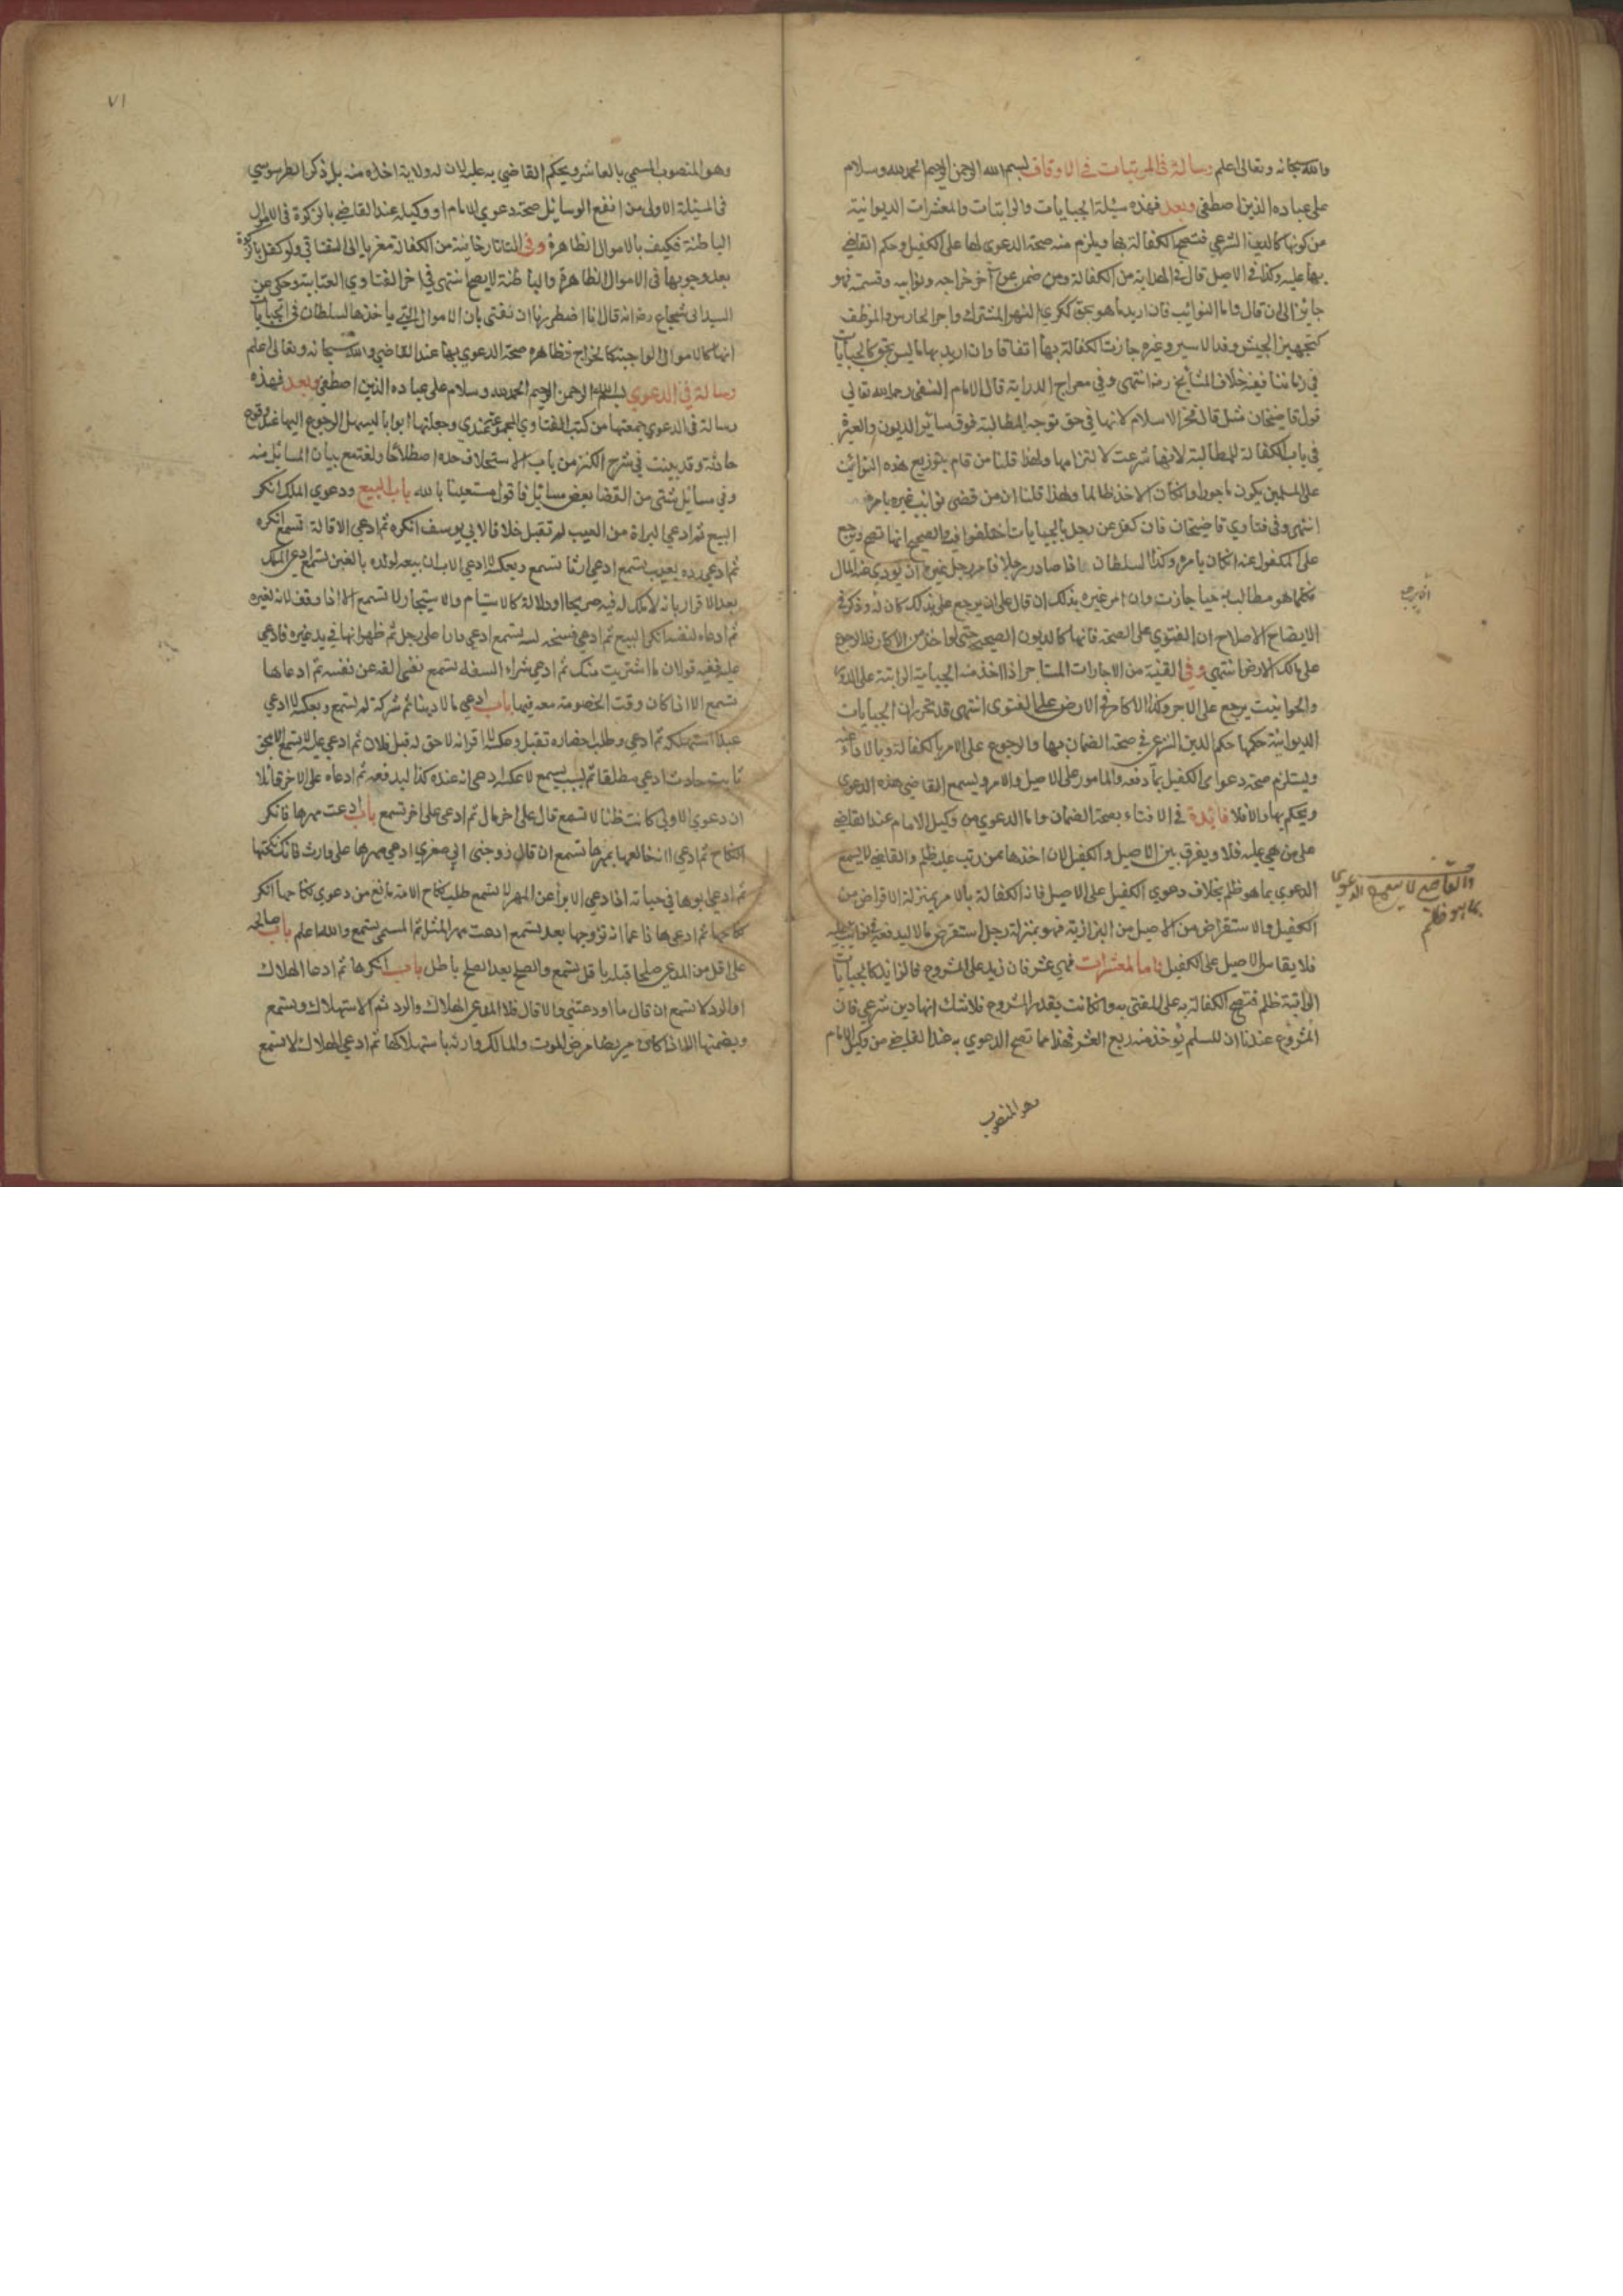 والله سبحانه وتعالى اعلم رسالة في المرتبات في الاوقاف بسم الله الرحمن الرحيم الحمد لله وسلام
على عباده الذين اصطفى وبعد فهذه مسئلة الجبايات والراتبات والمعشرات الديوانية
من كونها كالدين الشرعي فتصح الكفالة بها ويلزم منه صحة الدعوى بها على الكفيل وحكم القاضي
بها عليه وكذا في الاصيل قال في الهداية من الكفالة ومن ضمن عن آخر خراجه ونوايبه وقسمته فهو
جايز الى ان قال واما النوائب فان اريد ما هو بحق ككري النهر المشترك واجر الحارس والموظف
لتجهيز الجيش وفدا الاسير وغيره جازت الكفالة بها اتفاقا وان اريد بها ما ليس بحق كالجبايات
في زماننا ففيه خلاف المشايخ انتهى وفي معراج الدراية قال الامام النسفي رحمه الله تعالى
قول قاضيخان مثل قال فخر الاسلام لانها في حق توجه المطالبة فوق سائر الديون والعبرة
في باب الكفالة للمطالبة لانها شرعت لالتزامها ولهذا قلنا من قام بتوزيع هذه النوائب
على المسلمين يكون ماجورا وان كان الاخذ ظالما ولهذا قلنا ان من قضى نوائب غيره بامره
انتهى وفي فتاوي قاضيخان فان كفل عن رجل بالجبايات اختلفوا فيه والصحيح انها تصح ويرجع
على المكفول عنه ان كان بامره وكذا السلطان اذا صادر رجلا فامر رجل غيره ان يودي عنه المال
فكلما هو مطالب به حيا جازت وان امر غيره بذلك ان قال على ان يرجع على بذلك كان له وذكر في
الايضاح الاصلاح ان الفتوى على الصحة فانها كالديون الصحيحة حتى لو اخذ من الاكار فله الرجوع
على مالك الارض انتهى وفي القنية من الاجارات المستاجر اذا اخذ منه الجباية الراتبة على الدور
والحوانيت يرجع على الاجر وكذا الاكار في الارض وعليه الفتوى انتهى فقد تحرر ان الجبايات
الديوانية حكمها حكم الدين الشرعي في صحة الضمان بها والرجوع على الامر بالكفالة وبالاداء عنه
ويستلزم صحة دعوى الكفيل بما دفعه والمامور على الاصيل والامر ويسمع القاضي هذه الدعوى
ويحكم بها والا فلا فائدة في الافتاء بصحة الضمان واما الدعوى من وكيل الامام عند القاضي
على من هي عليه فلا ويفرق بين الاصيل والكفيل لان اخذها ممن رتب عليه ظلم والقاضي لا يسمع
الدعوى بما هو ظلم بخلاف دعوى الكفيل على الاصيل فان الكفالة بالامر بمنزلة الاقراض من
الكفيل والاستقراض من الاصيل من البزازية فهو بمنزلة رجل استقرض مالا ليدفعه في نوايب عليه
فلا يقاس الاصيل على الكفيل واما المعشرات فهي عشر فان زيد على المشروع فالزايد كالجبايات
الراتبة ظلم فتصح الكفالة به على المفتى به وان كانت بقدر المشروع فلا شك انها دين شرعي فان
المشروع عندنا ان المسلم يؤخذ منه ربع العشر فهذا مما تصح الدعوى به عند القاضي من وكيل الامام
وهو المنصوب
والقاضي لا يسمع الدعوى
بما هو ظلم
٧١
وهو المنصوب المسمى بالعاشر ويحكم القاضي به عليه لان له ولاية اخذه منه بل ذكر الطرسوسي
في المسئلة الاولى من انفع الوسائل صحة دعوى الامام او وكيله عند القاضي بالزكوة في الاموال
الباطنة فكيف بالاموال الظاهرة وفي التاتارخانية من الكفالة معزيا الى الغناقي ولو كفل بالزكوة
بعد وجوبها في الاموال الظاهرة والباطنة لا يصح انتهى وفي اخر الفتاوي العتابية وحكي عن
السيد ابي شجاع انه قال انا اضطررنا ان نفتي بان الاموال التي ياخذها السلطان في الجبايات
انها كالاموال الواجبة كالخراج فظاهره صحة الدعوى بها عند القاضي والله سبحانه وتعالى اعلم
رسالة في الدعوي بسم الله الرحمن الرحيم الحمد لله وسلام على عباده الذين اصطفى وبعد فهذه
رسالة في الدعوي جمعتها من كتب الفتاوي وجعلتها ابوابا ليسهل الرجوع اليها عند وقوع
حادثة وقد بينت في شرح الكنز من باب الاستحلاف حده اصطلاحا ولغة مع بيان المسائل منه
وفي مسائل شتى من القضا بعض مسائل فاقول مستعينا بالله باب البيع ودعوي الملك انكر
البيع ثم ادعي البراة من العيب لم تقبل خلافا لابي يوسف انكره ثم ادعي الاقالة تسمع انكره
ثم ادعي رده بعيب تسمع ادعي ارثا تسمع وبعكسه لا ادعي الاب ان بيعه لولده بالغبن تسمع ادعي الملك
بعد الاقرار بانه لا ملك له فيه صريحا او دلالة كالاستيام والاستيجار لا تسمع الا اذا وقف لانه لغيره
ثم ادعاه لنفسه انكر البيع ثم ادعي فسخه تسمع ادعي دارا على رجل ثم ظهر انها في يد غيره فادعي
عليه ففيه قولان ما اشتريت منك ثم ادعي شراء السفلة تسمع نفى الفه عن نفسه ثم ادعاها
تسمع الا اذا كان وقت الخصومة معه فيها باب ادعي مالا دينا ثم شركة لم تسمع وبعكسه لا ادعي
عبدا استهلكه ثم ادعي وطلب احضاره تقبل وعكسه لا اقر انه لا حق له قبل فلان ثم ادعي عليه لا تسمع الا بحق
ثابت حادث ادعي مطلقا ثم بسبب يسمع لا عكسه ادعي انه عنده كذا ليدفعه ثم ادعاه على الاخر قائلا
ان دعوي الاولى كانت ظنا لا تسمع قال على اخر مال ثم ادعى على اخر تسمع باب ادعت مهرها فانكر
النكاح ثم ادعي انه خالعها بمهرها تسمع ان قال زوجني ابي صغري ادعي مهرها على وارث فانكر نكاحها
ثم ادعي ابوها في حياته اذا دعي الابرا عن المهر لا يسمع طلب نكاح الامة مانع من دعوي نكاحها انكر
نكاحها ثم ادعي ها زاعما انه تزوجها بعد يسمع ادعت مهر المثل ثم المسمى يسمع والله اعلم باب صالحه
على اقل من المدعي صلحا قبله باقل يسمع والصلح بعد الصلح باطل باب انكرها ثم ادعا الهلاك
او الرد لا تسمع ان قال ما اودعتني والا قال فلا المدعي الهلاك والرد ثم الاستهلاك ويسمع
ويضمنها الا اذا كان مريضا مرض الموت والمالك وارثه باستهلاكها ثم ادعي الهلاك لا تسمع